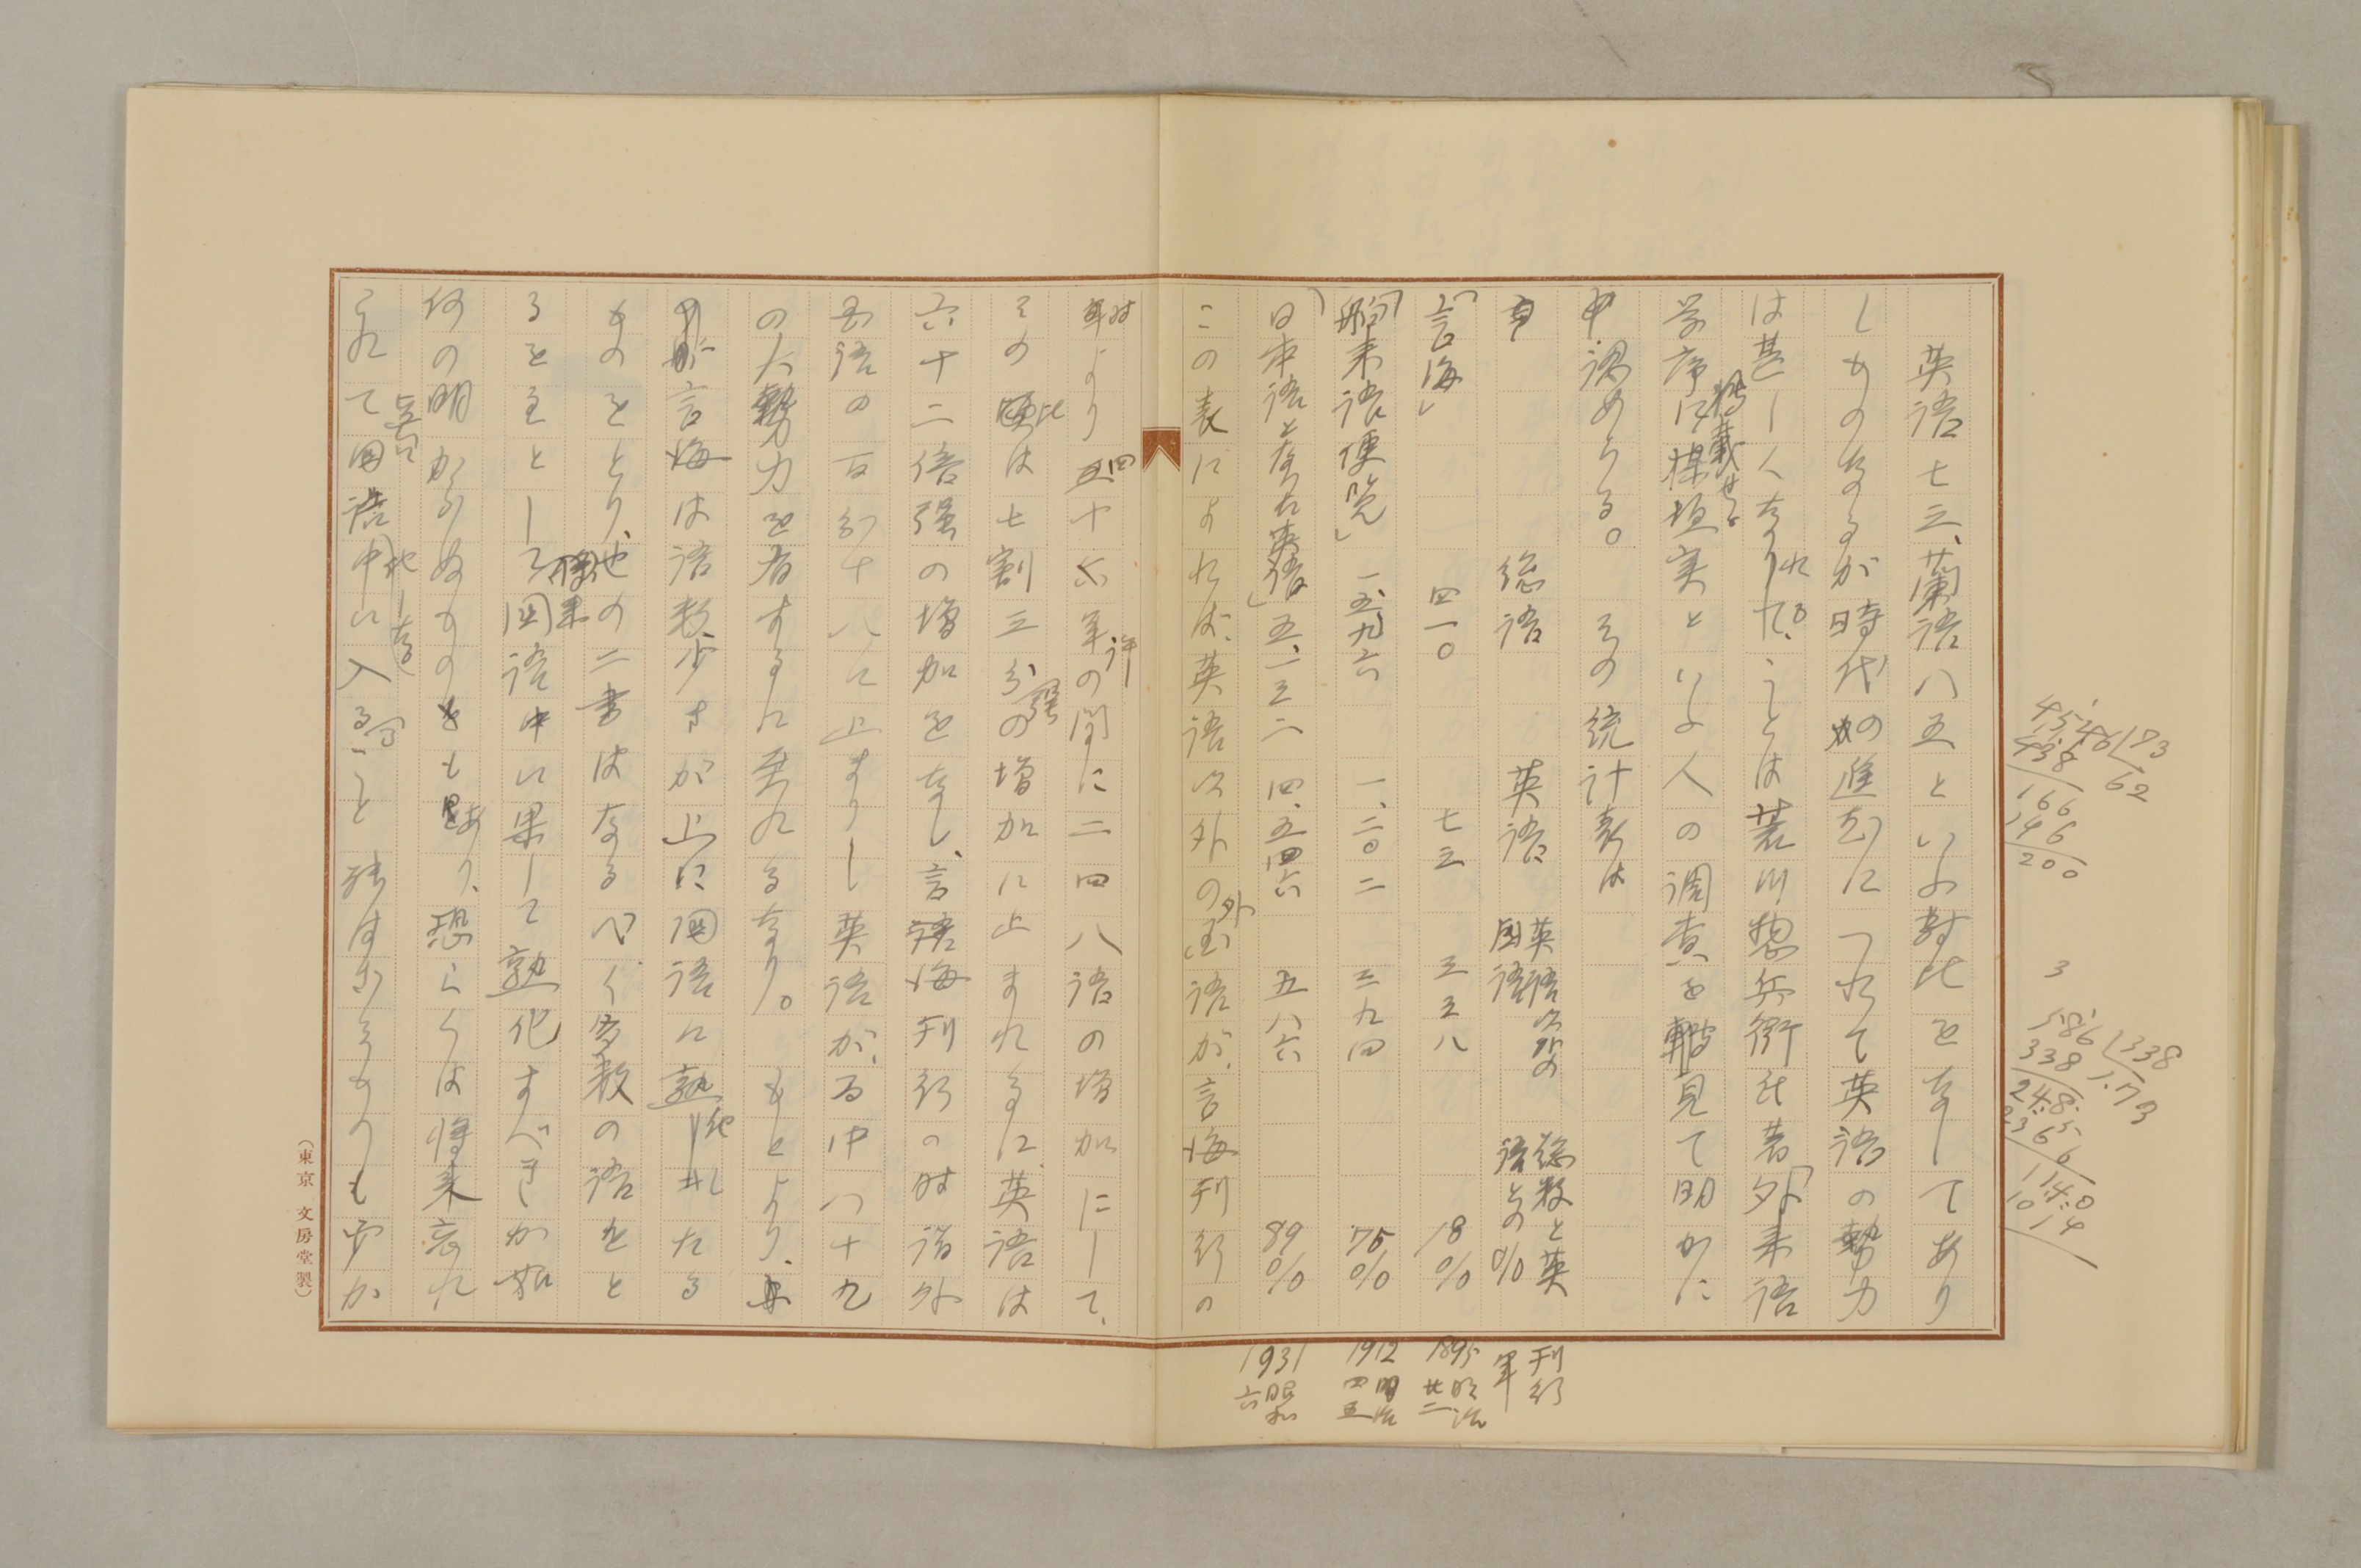 英語七三、蘭語八五といふ対比をなしてあり
しものなるが時代の進むにつれて英語の勢力
は甚しくなりたれ。ことは荒川惣兵衛氏著「外来語
学序」に掲載せる楳垣実といふ人の調査を見て明かに
認めらる。その統計表は
総語 英語 英語以外の国語 総数と英語との%
刊行年
「言海」 四一〇 七三 三三八 18% 1895 明治廿二
「舶来語便覧」 一五九六 一、二〇二 三九四 75% 1912 明治四五
「日本語となつた英語」 五、一三二 四、五四六 五八六 89% 1931 昭和六
この表によれば、英語以外の外国語が、言海刊行の
時より四十六年許の間に二四八語の増加にして、
その比は七割三分強の増加に止まれるに、英語は
六十二倍強の増加をなし、言海刊行の時諸外
国語の百分十八に止まりし英語が、百中八十九
の大勢力を有するに至れるなり。もとより、
言海は語数少きが上に国語に熟化したる
ものをとり、他の二書はなるべく多数の語をと
るを主として将来国語中に果して熟化すべきか如
何の明かならぬものをもあり、恐らくは将来忘れ
られて国語中に入ること能はざるものもあらむか
4546 73
438 62
166
146
200
3
586 338
338 1.73
248.0
236 6
114 0
101 4
(東京 文房堂製)